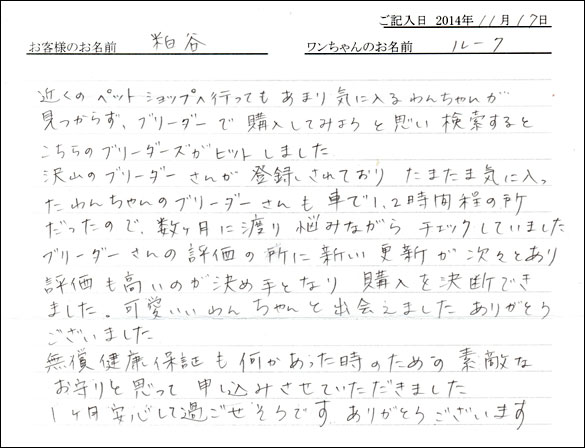 ご記入日 2014年 11月 17日
お客様のお名前 粕谷 ワンちゃんのお名前 ルーク
近くのペットショップへ行っても あまり気に入るわんちゃんが
見つからず、ブリーダーで購入してみようと思い検索すると
こちらのブリーダーズがヒットしました
沢山のブリーダーさんが登録されており たまたま気に入っ
たわんちゃんのブリーダーさんも車で1、2時間程の所
だったので、数ヶ月に渡り悩みながら チェックしていました
ブリーダーさんの評価の所に新しい更新が次々とあり
評価も高いのが決め手となり 購入を決断でき
ました。可愛いいわんちゃんと出会えました ありがとう
ございました
無償健康保証も何かあった時のための素敵な
お守りと思って申し込みさせていただきました
1ヶ月安心して過ごせそうです ありがとうございます